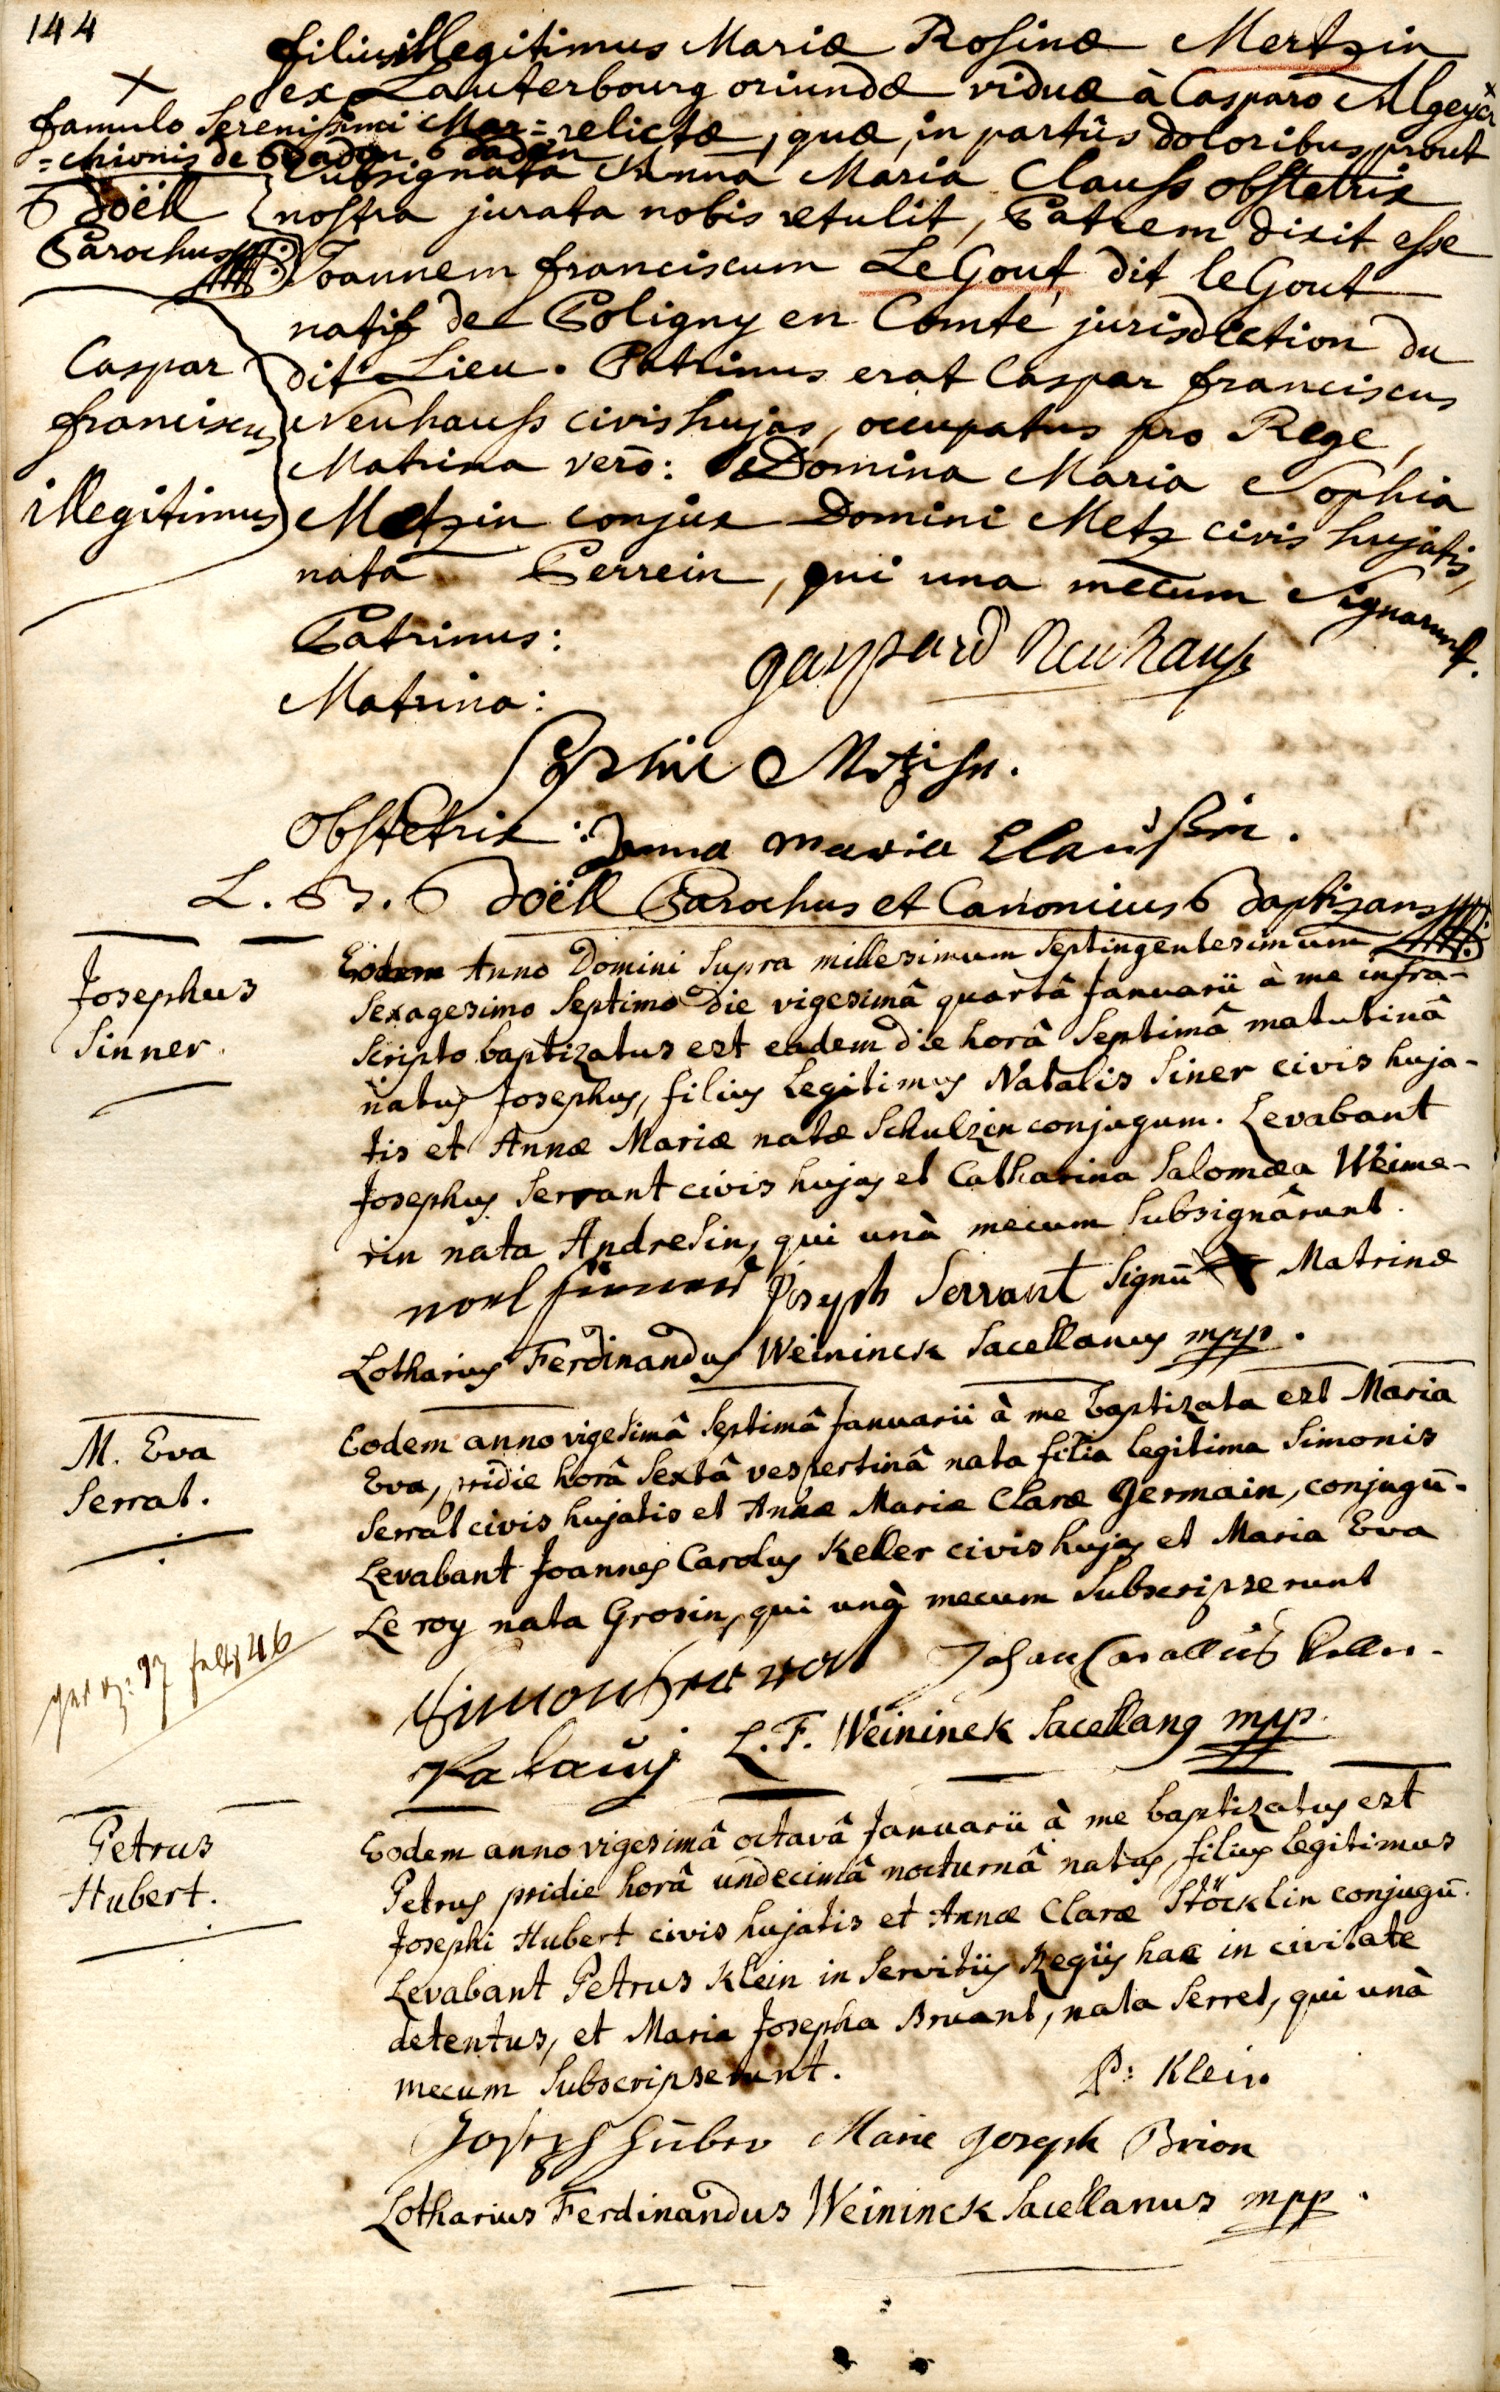 144
filius illegitimus Mariæ Rosinæ Mertzin
ex Lauterbourg oriundæ viduæ à Casparo Algeyer x
x
famulo Serenissimi Mar=
=chionis de Baden Baden
Böell
Parochus
relictæ, quæ, in partûs doloribus, prout
subsignata Anna Maria Clauss obstetrix
nostra jurata nobis retulit, Patrem dixit esse
Joannem franciscum LeGout dit leGout
natif de Poligny en Comté jurisdiction du
dit Lieu. Patrinus erat Caspar franciscus
Neuhauss civis hujas, occupatus pro Rege,
Matrina verò: Domina Maria Sophia
Metzin conjux Domini Metz civis hujatis,
nata Perrein, qui una mecum Signarunt.
Caspar
franciscus
illegitimus
Patrinus:
gaspard Neuhauss
Matrina:
Sophie Metzisn.
Obstetrix: Anna maria Claussin.
L. B. Böell Parochus et Canonicus Baptizans
Josephus
Sinner.
Eodem Anno Domini Supra millesimum Septingentesimum
Sexagesimo Septimo die vigesimâ quartâ Januarii à me infra-
scripto baptizatus est eadem die horâ Septimâ matutinâ
natus Josephus, filius Legitimus Natalis Siner civis huja-
tis et Annæ Mariæ natæ Schulzin conjugum. Levabant
Josephus Serrant civis hujas et Catharina Salomæa Weime-
rin nata Andresin, qui unà mecum Subsignârunt.
noel sinner Joseph Serrant Signū Matrinæ
Lotharius Ferdinandus Weininck Sacellanus mpp.
M. Eva
Serrat.
Eodem anno vigesimâ Septimâ Januarii à me baptizata est Maria
Eva, pridie horâ Sextâ vespertinâ nata filia legitima Simonis
Serrat civis hujatis et Annæ Mariæ Claræ Germain, conjugū.
Levabant Joannes Carolus Keller civis hujas et Maria Eva
Le roy nata Grosin, qui unà mecum Subscripserunt
Johan Carollus Keller.
L. F. Weininck Sacellang mpp.
Petrus
Hubert.
Eodem anno vigesimâ octavâ Januarii à me baptizatus est
Petrus pridie horâ undecimâ nocturnâ natus, filius Legitimus
Josephi Hubert civis hujatis et Annæ Claræ Stöcklin conjugū.
Levabant Petrus Klein in Servitiis Regiis hac in civitate
detentus, et Maria Josepha Bruant, nata Serret, qui unà
mecum Subscripserunt.
P: Klein
Joseph hüber Marie Joseph Brion
Lotharius Ferdinandus Weininck Sacellanus mpp.